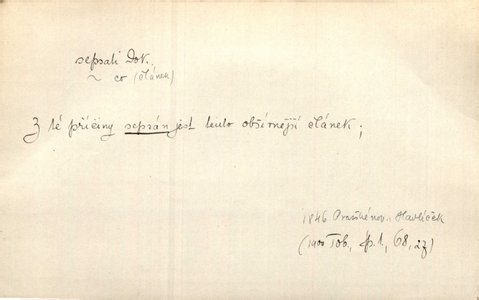 sepsati Dok.
~ co (článek)
Z té příčiny sepsán jest tento obšírnější článek;
1846 Pražské nov. Havlíček
(1900 Tob., sp. 1, 68, 27)